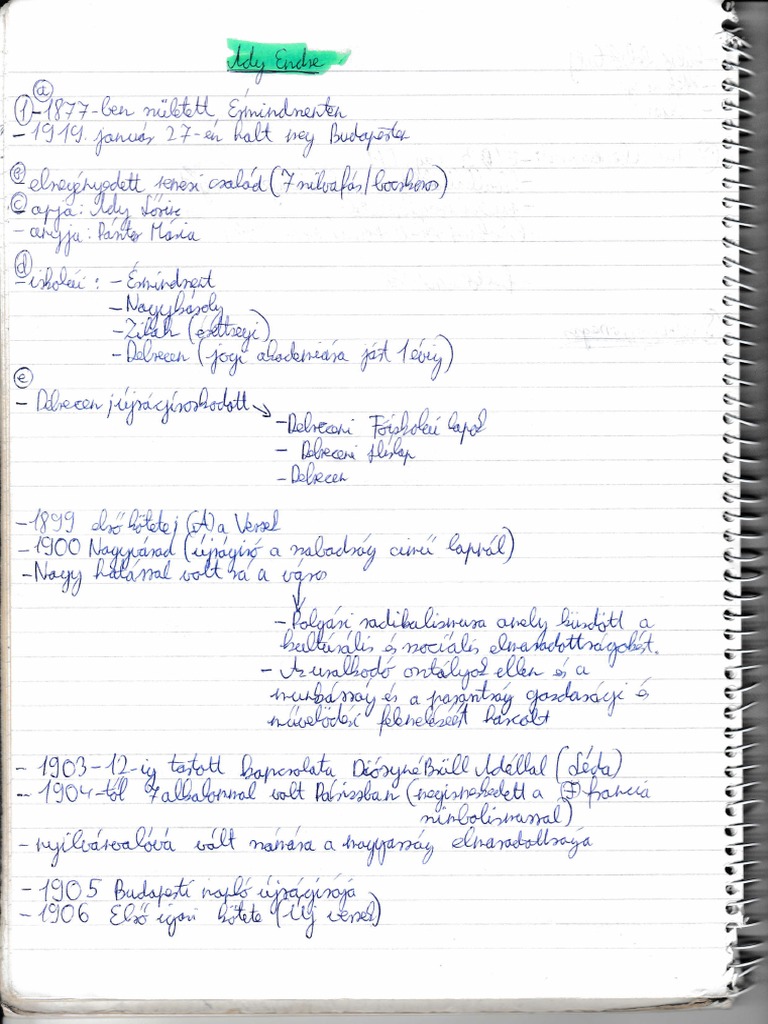 Ady Endre
a
1 -1877-ben született Érmindszenten
-1919. január 27-én halt meg Budapesten
b elszegényedett nemesi család (7 szilvafás/bocskoros)
c -apja: Ady Lőrinc
-anyja: Pásztor Mária
d
-iskolái: -Érmindszent
-Nagykároly
-Zilah (érettségi)
-Debrecen (jogi akadémiára járt 1 évig)
e
- Debrecen újságíróskodott
-Debreceni Főiskolai lapok
- Debreceni Hírlap
-Debrecen
-1899 első kötete (A) a Versek
-1900 Nagyvárad (újságíró a szabadság című lapnál)
-Nagy hatással volt rá a város
-Polgári radikalizmusa amely küzdött a
kulturális és szociális elmaradottságokért.
- Az uralkodó osztályok ellen és a
munkásság és a parasztság gazdasági és
művelődési felemelését harcolt
- 1903-12-ig tartott kapcsolata Diósyné Brüll Adéllal (Léda)
- 1904-től 7 alkalommal volt Párizsban (megismerkedett a F francia
szimbolizmussal)
-nyilvánvalóvá vált számára a magyarság elmaradottsága
- 1905 Budapesti napló újságírója
- 1906 Első igazi kötete (Új versek)